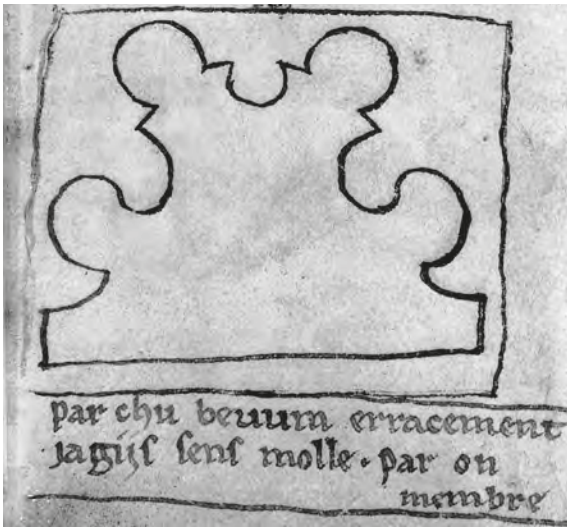 par chu bevum erracement
jagijs sens molle. par on
membre